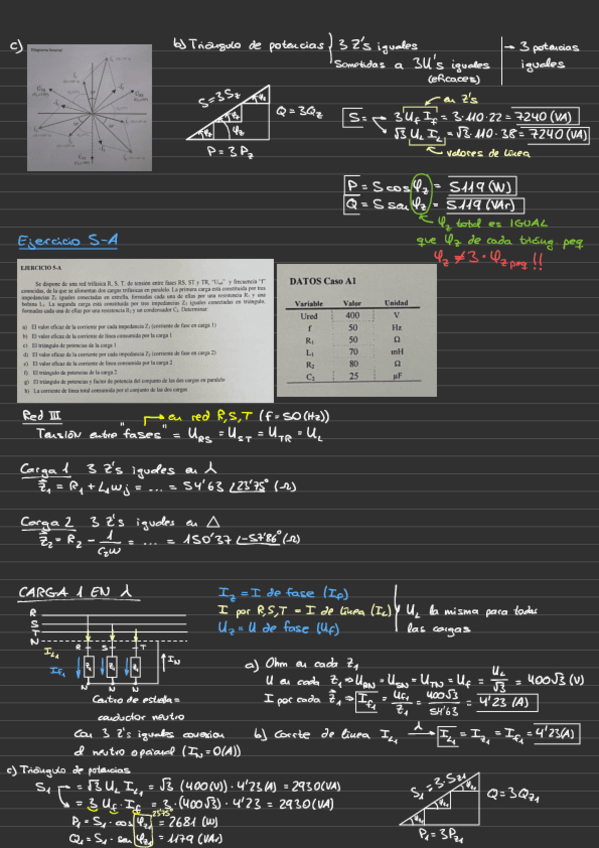 c)
b) Triángulo de potencias
3 Z's iguales
Sometidas a 3U's iguales
(eficaces)
→ 3 potencias
iguales
S=3Sz
Q=3Qz
φz
P=3Pz
en Z's
S= 3 Uf If = 3·110·22 = 7240 (VA)
√3 UL IL = √3·110·38 = 7240 (VA)
valores de línea
P = S cos φz = 5119 (W)
Q = S sen φz = 5119 (VAr)
φz total es IGUAL
que φz de cada triáng. peq
φz ≠ 3·φz peq!!
Ejercicio 5-A
EJERCICIO 5-A
Se dispone de una red trifásica R, S, T, de tensión entre fases RS, ST y TR, "Ured" y frecuencia "f"
conocidas, de la que se alimentan dos cargas trifásicas en paralelo. La primera carga está constituida por tres
impedancias Z1 iguales conectadas en estrella, formadas cada una de ellas por una resistencia R1 y una
bobina L1. La segunda carga está constituida por tres impedancias Z2 iguales conectadas en triángulo,
formadas cada una de ellas por una resistencia R2 y un condensador C2. Determinar
a) El valor eficaz de la corriente por cada impedancia Z1 (corriente de fase en carga 1)
b) El valor eficaz de la corriente de línea consumida por la carga 1
c) El triángulo de potencias de la carga 1
d) El valor eficaz de la corriente por cada impedancia Z2 (corriente de fase en carga 2)
e) El valor eficaz de la corriente de línea consumida por la carga 2
f) El triángulo de potencias de la carga 2
g) El triángulo de potencias y factor de potencia del conjunto de las dos cargas en paralelo
h) La corriente de línea total consumida por el conjunto de las dos cargas
DATOS Caso A1
Variable Valor Unidad
Ured 400 V
f 50 Hz
R1 50 Ω
L1 70 mH
R2 80 Ω
C2 25 µF
Red III → en red R,S,T (f=50(Hz))
Tensión entre "fases" = URS = UST = UTR = UL
Carga 1 3 Z's iguales en ⅄
Z1 = R1 + L1ωj = ... = 54'63 ∠23'75° (Ω)
Carga 2 3 Z's iguales en △
Z2 = R2 - 1/C2ω = ... = 150'37 ∠-57'86° (Ω)
CARGA 1 EN ⅄
R
S
T
N
R S T
IL1
If1
Z1 Z1 Z1
IN
N N N
Centro de estrella =
conductor neutro
Con 3 Z's iguales conexión
al neutro opcional (IN=0(A))
Iz = I de fase (If)
I por R,S,T = I de línea (IL)
Uz = U de fase (Uf)
UL la misma para todas
las cargas
a) Ohm en cada Z1
U en cada Z1 ⇒ URN = USN = UTN = Uf = UL/√3 = 400√3 (V)
I por cada Z1 ⇒ If1 = Uf1/Z1 = 400√3/54'63 = 4'23 (A)
b) Corrte de línea IL1 ⅄→ IL1 = Iz1 = If1 = 4'23(A)
c) Triángulo de potencias
S1 = √3 UL IL1 = √3 (400(V))·4'23(A) = 2930(VA)
= 3 Uf·If = 3·(400√3)·4'23 = 2930(VA)
23'75°
P1 = S1·cos φz1 = 2681 (W)
Q1 = S1·sen φz1 = 1179 (VAr)
S1 = 3·Sz1
Q = 3Qz1
P1 = 3Pz1